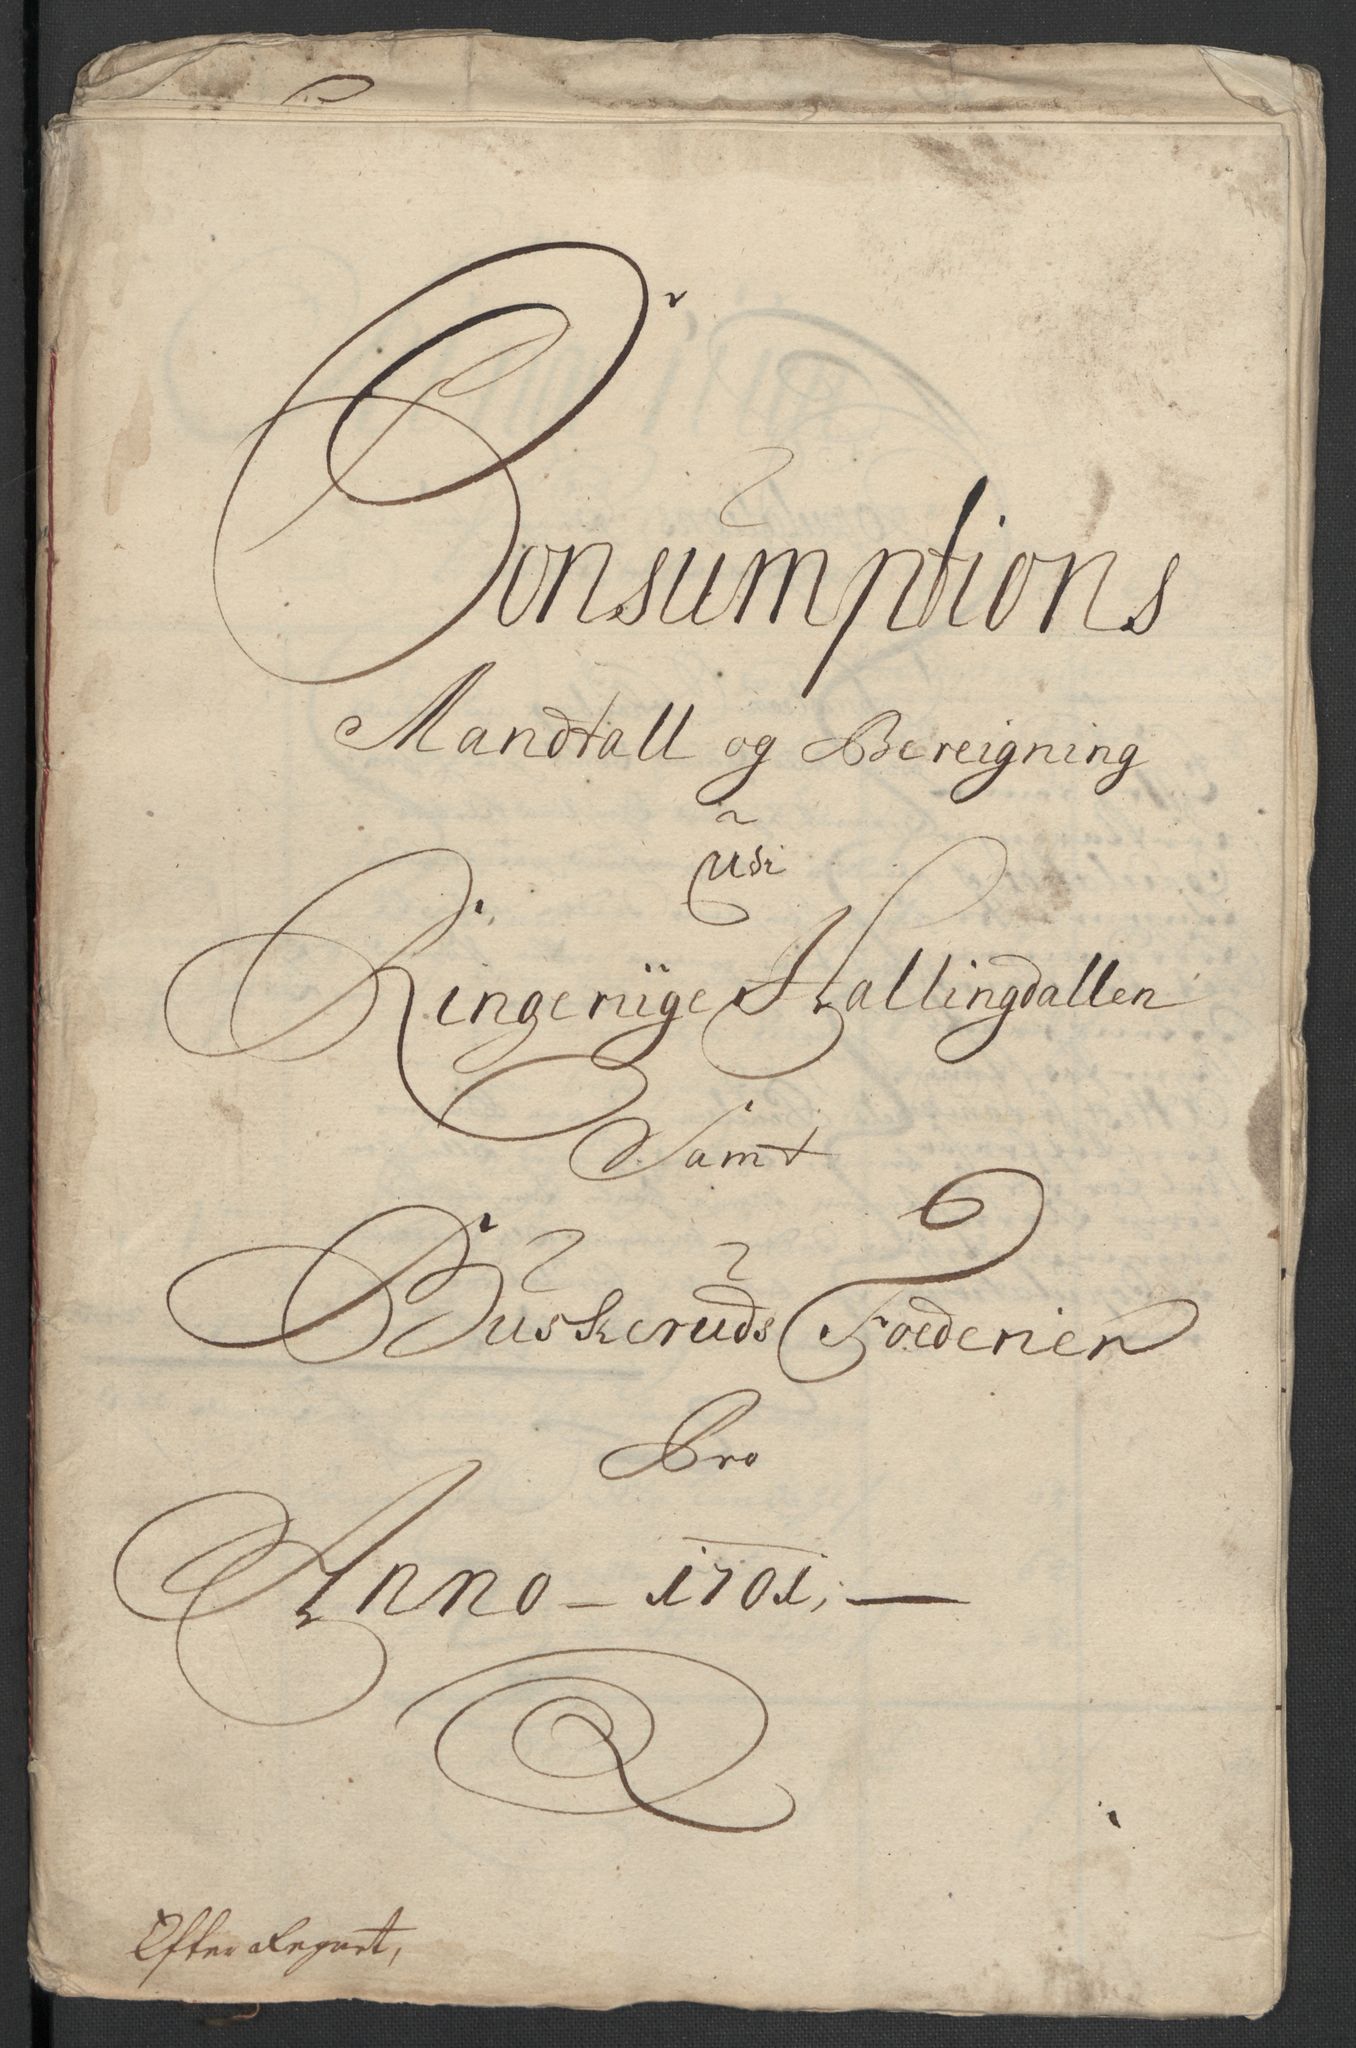 Consumptions
Mandtall og Bereigning
udi
Ringeriige Hallingdallen
Samt
Buskeruds Foederier
Pro
Anno - 1701, —
Efter